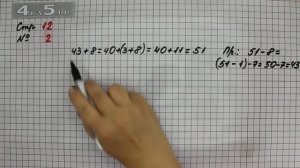 4.5.ru
Стр 12
№ 2
43+8=40+(3+8)=40+11=51
Пр.: 51-8=
(51-1)-7=50-7=43